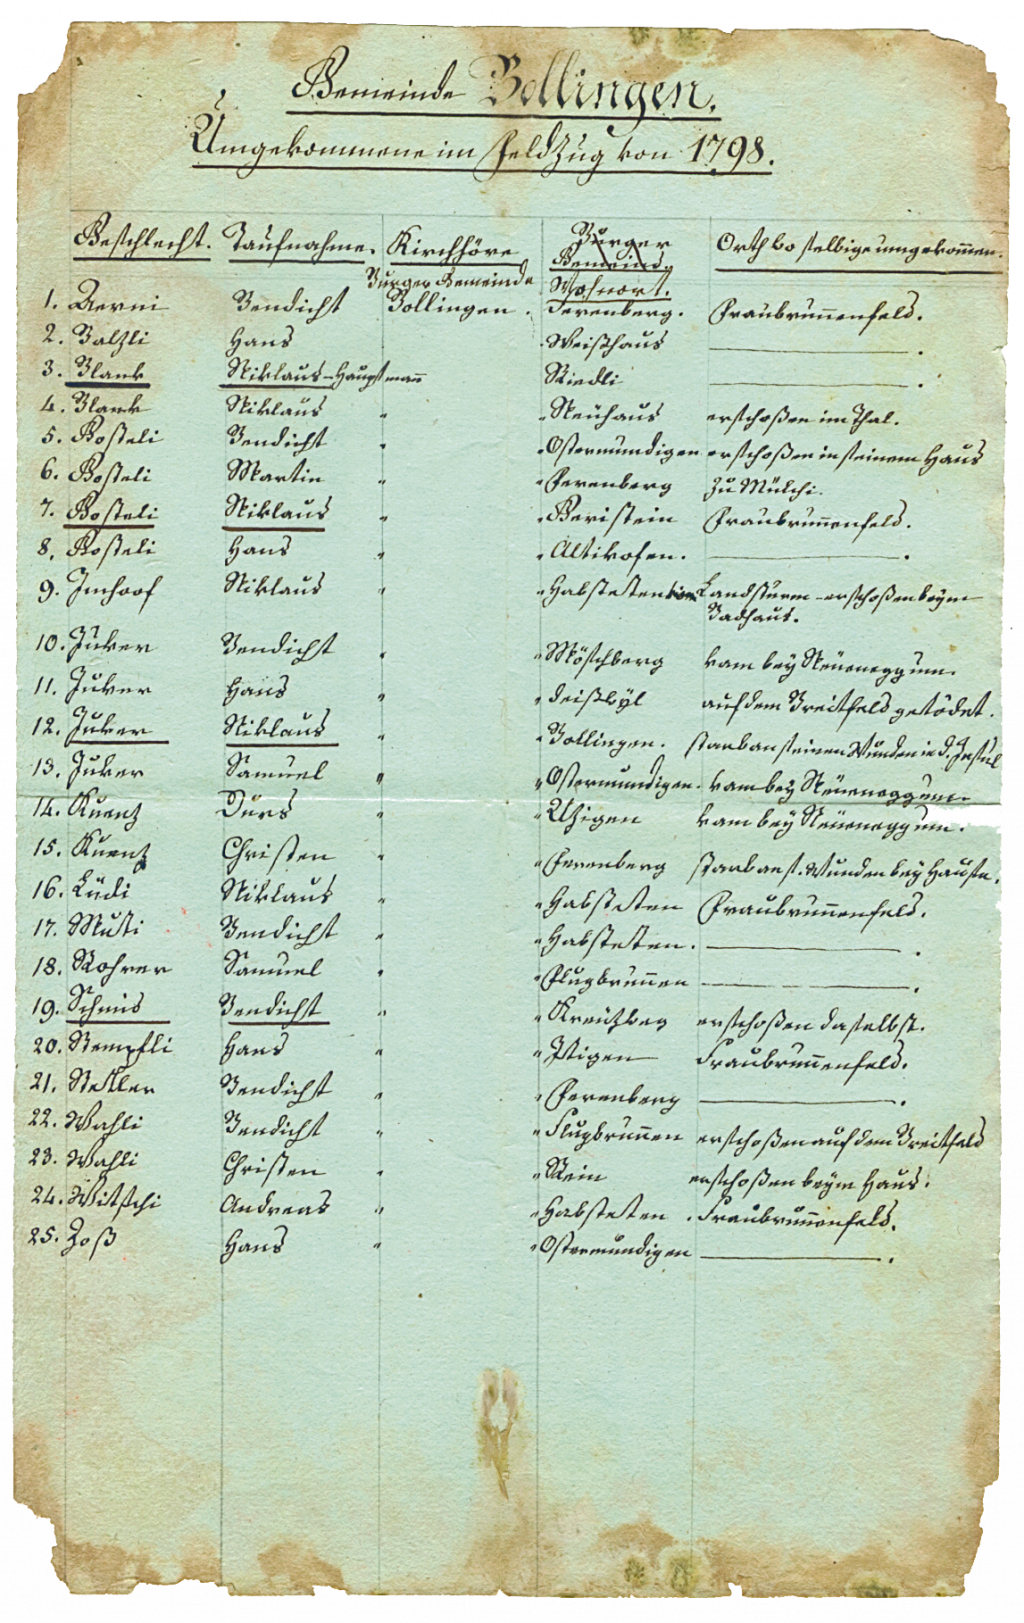 Gemeinde Bollingen.
Umgekommene im Feldzug von 1798.
Geschlecht. Taufnahme. Kirchhöre Burger Orth wo selbige umgekommen.
Gemeind.
Burger Gemeinde Wohnort.
1. Aerni Bendicht Bollingen. Ferenberg. Fraubrunnenfeld.
2. Balzli Hans " Weißhaus ———.
3. Blank Niklaus - Hauptmann Riedli ———.
4. Blank Niklaus " " Neuhaus erschoßen im Thal.
5. Gosteli Bendicht " " Ostermundigen erschoßen in seinem Haus
6. Gosteli Martin " " Ferenberg zu Mülchi.
7. Gosteli Niklaus " " Geristein Fraubrunnenfeld.
8. Gosteli Hans " " Altikofen. ———.
9. Imhoof Niklaus " " Habsteten Landsturm - erschoßen beym
Badhaus.
10. Juker Bendicht " " Möschberg kam bey Neuenegg um.
11. Juker Hans " " Deißwyl auf dem Breitfeld getödet.
12. Juker Niklaus " " Bollingen. starb an seinen Wunden in d. Insul
13. Juker Samuel " " Ostermundigen. kam bey Neuenegg um.
14. Kuenz Durs " " Uzigen kam bey Neuenegg um.
15. Kuenz Christen " " Ferenberg starb an s. Wunden bey Hause.
16. Lüdi Niklaus " " Habsteten Fraubrunnenfeld.
17. Musti Bendicht " " Habsteten. ———.
18. Rohrer Samuel " " Flugbrunnen ———.
19. Schmid Bendicht " " Kreuzweg erschoßen daselbst.
20. Stempfli Hans " " Itigen Fraubrunnenfeld.
21. Stettler Bendicht " " Ferenberg ———.
22. Wahli Bendicht " " Flugbrunnen erschoßen auf dem Breitfeld
23. Wahli Christen " " Rein erschoßen beym Haus.
24. Witschi Andreas " " Habsteten. Fraubrunnenfeld.
25. Zoß Hans " " Ostermundigen ———.